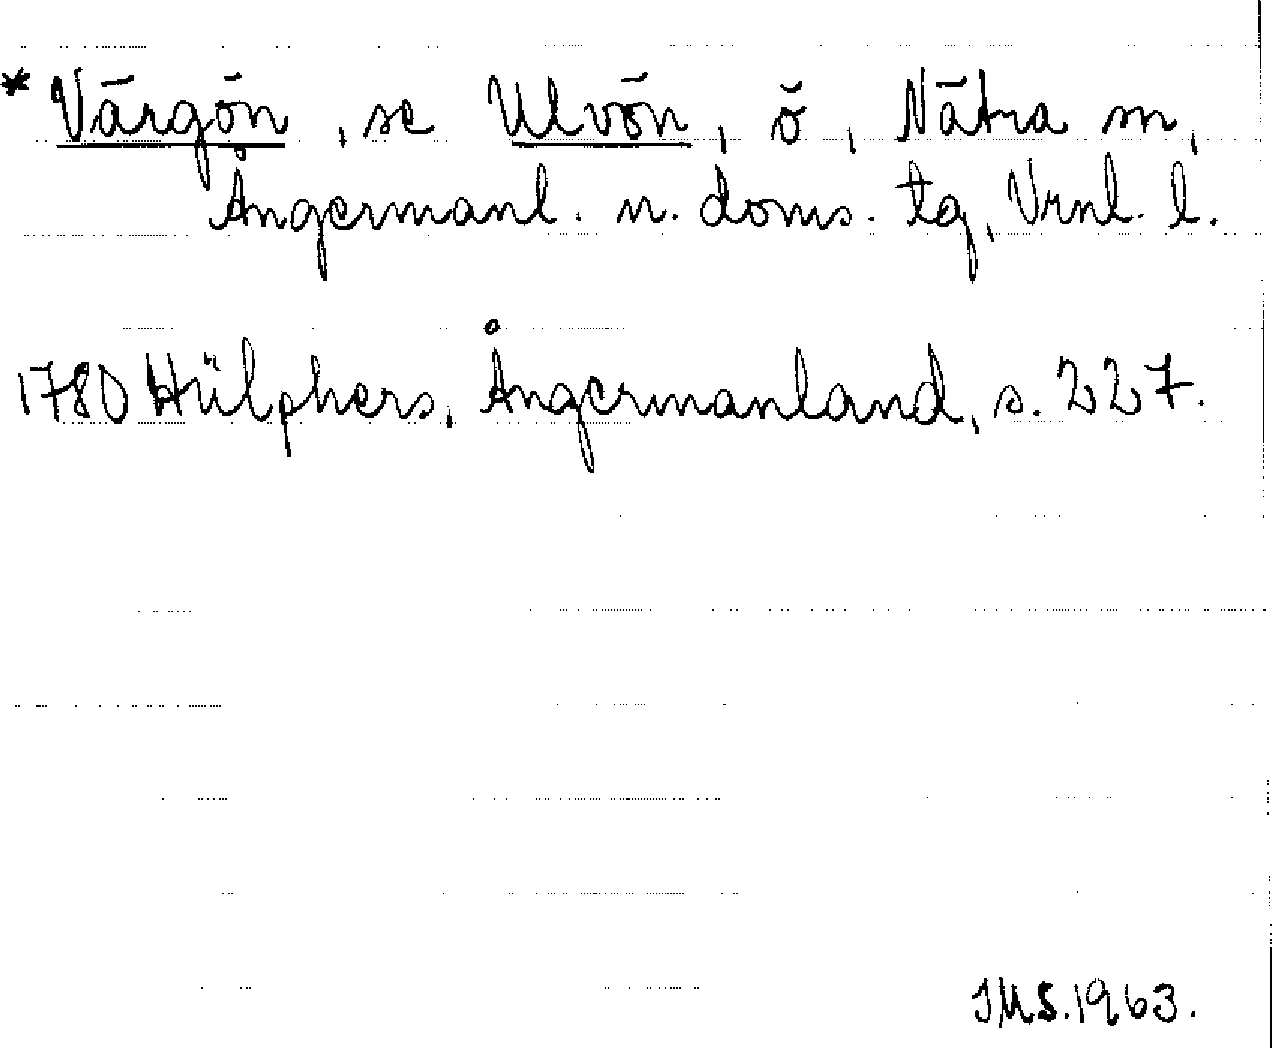 * Värgön, se Ulvön, ö, Nätra sn,
Ångermanl. n. doms. tg, Vrnl. l.
1780 Hülphers, Ångermanland, s. 227.
IMS. 1963.